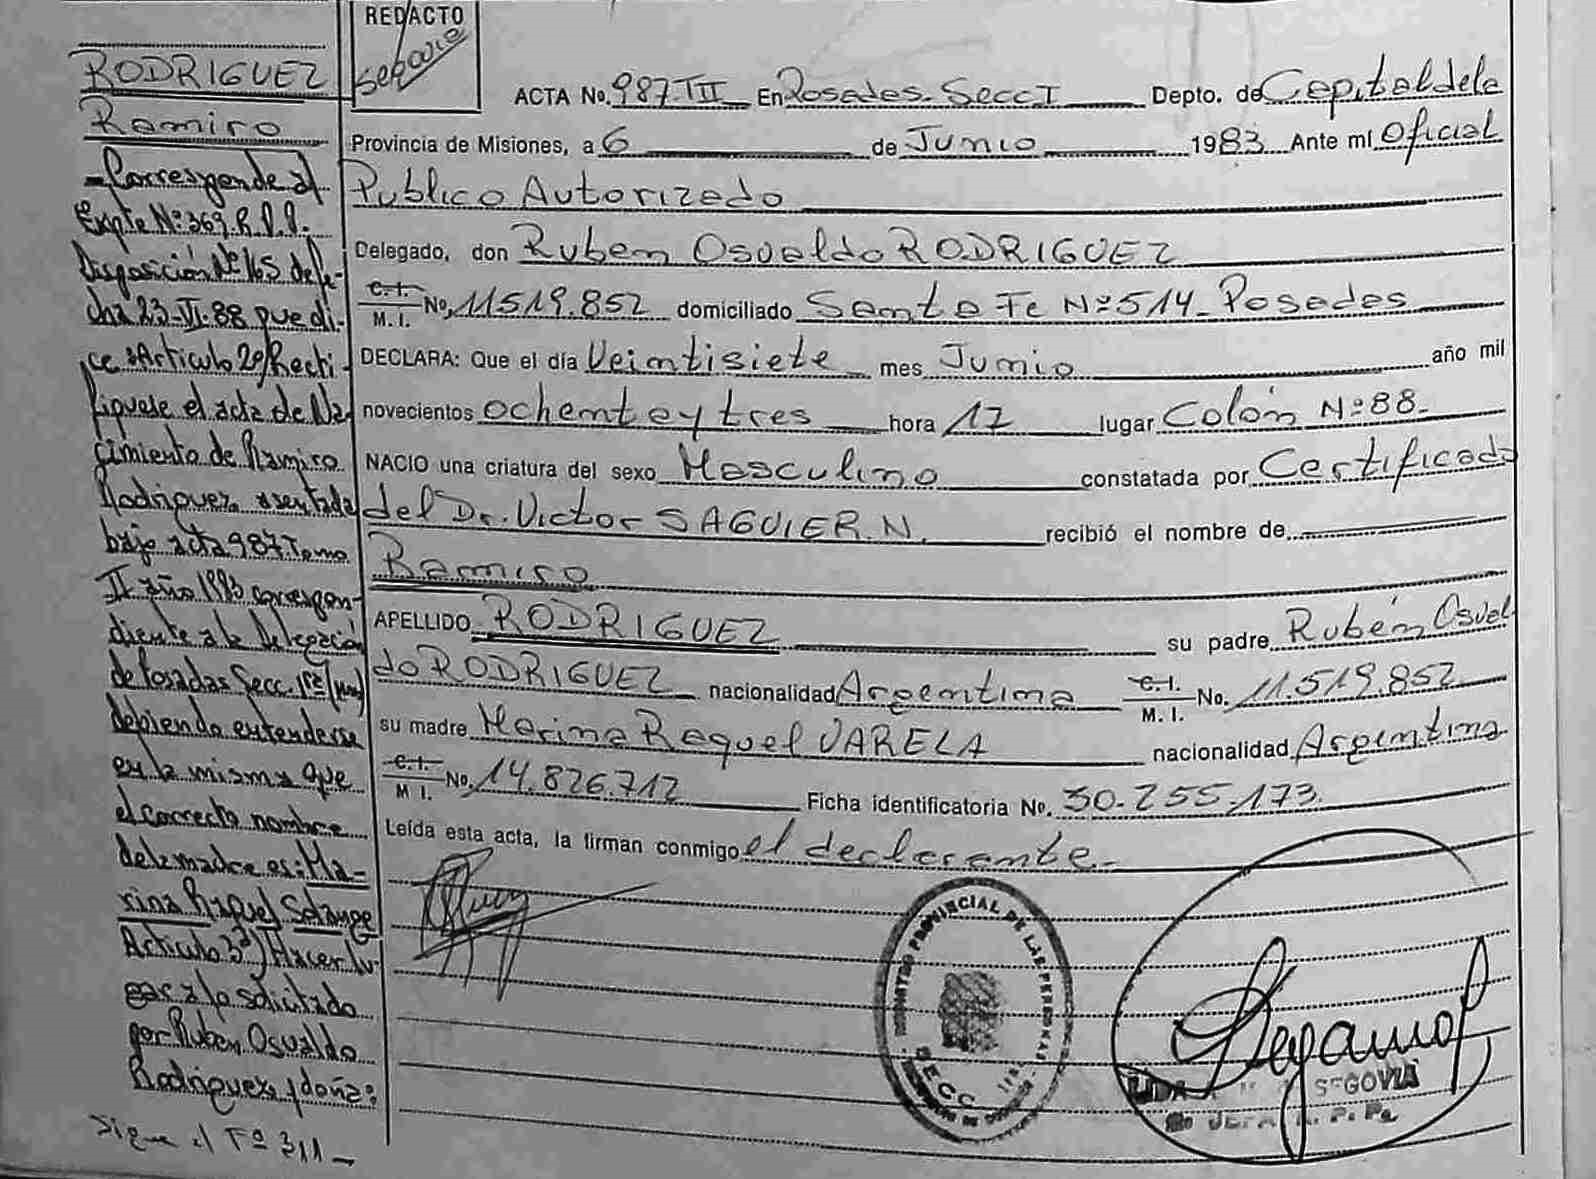 RODRIGUEZ
Ramiro
- Corresponde al
Expte Nº 369.R.
Disposición Nº 165 de fe-
cha 23-VI-88 que di-
ce: Articulo 2º) Recti-
fiquese el acta de Na-
cimiento de Ramiro
Rodriguez asentada
bajo acta 987 Tomo
II año 1983 correspon-
diente a la Delegación
de Posadas Secc. 1ra
debiendo entenderse
en la misma que
el correcto nombre
de la madre es: Ma-
rina Raquel Solange
Articulo 3º) Hacer lu-
gar a lo solicitado
por Rubén Osvaldo
Rodriguez y doña:
Sigue al Tº 311 -
REDACTO
Segovia
ACTA No. 987-III En Posadas. Secc I Depto. de Capital de la
Provincia de Misiones, a 6 de Junio 1983 Ante mí Oficial
Publico Autorizado
Delegado, don Ruben Osvaldo RODRIGUEZ
C. I. M. I. No. 11519.852 domiciliado Santa Fe Nº 514 - Posadas
DECLARA: Que el día Veintisiete mes Junio año mil
novecientos ochenta y tres hora 17 lugar Colón Nº 88.
NACIO una criatura del sexo Masculino constatada por Certificado
del Dr. Victor SAGUIER. N. recibió el nombre de
Ramiro
APELLIDO RODRIGUEZ su padre Rubén Osval
do RODRIGUEZ nacionalidad Argentina C. I. M. I. No. 11.519.852
su madre Marina Raquel VARELA nacionalidad Argentina
C. I. M I. No. 14.826.712 Ficha identificatoria No. 30.255.173.
Leída esta acta, la firman conmigo el declarante.
REGISTRO PROVINCIAL DE LAS PERSONAS
SECC.
SEGOVIA